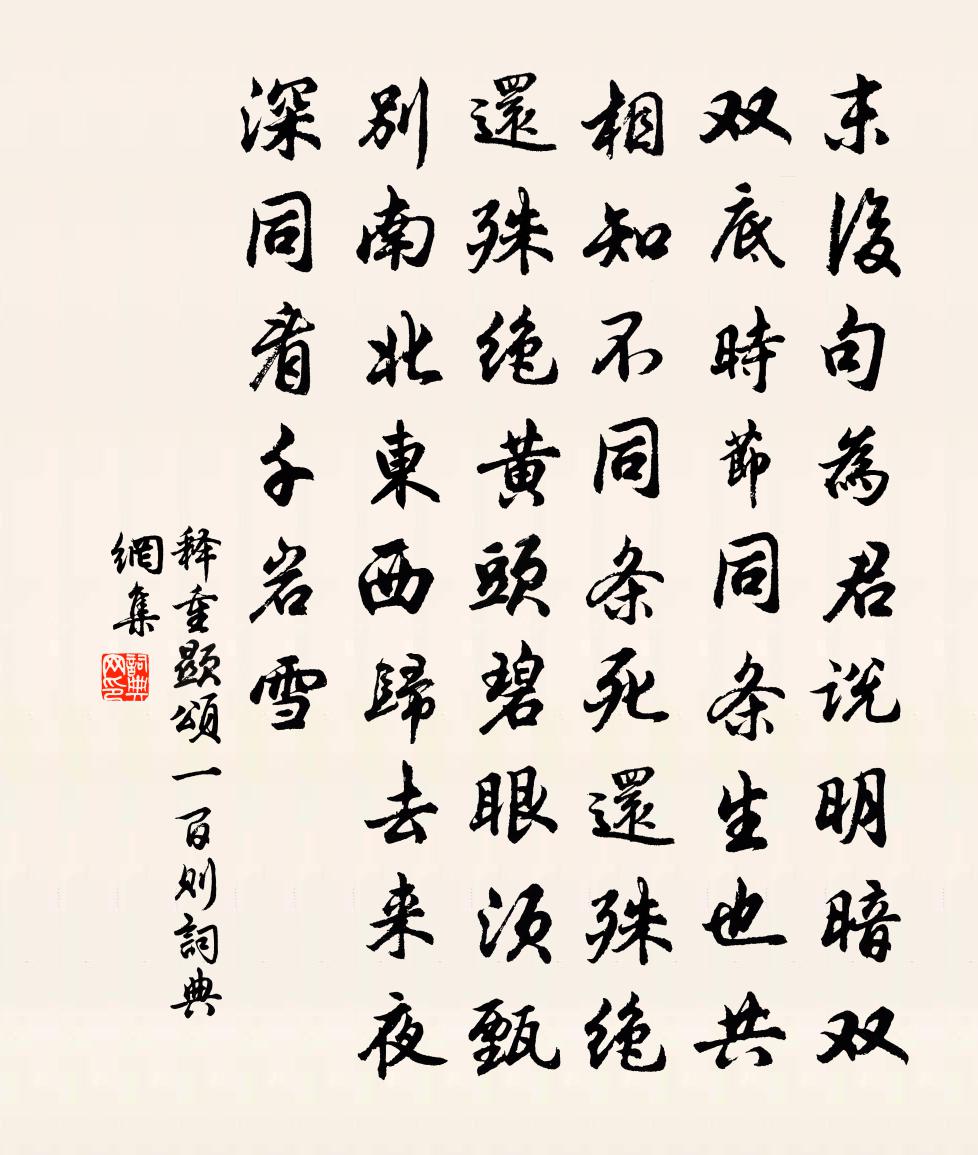 末後句為君说明暗双
双底時節同条生也共
相知不同条死還殊绝
還殊绝黄頭碧眼须甄
别南北東西歸去来夜
深同看千岩雪
释重顯頌一百则詞典
網集
詞典
网印